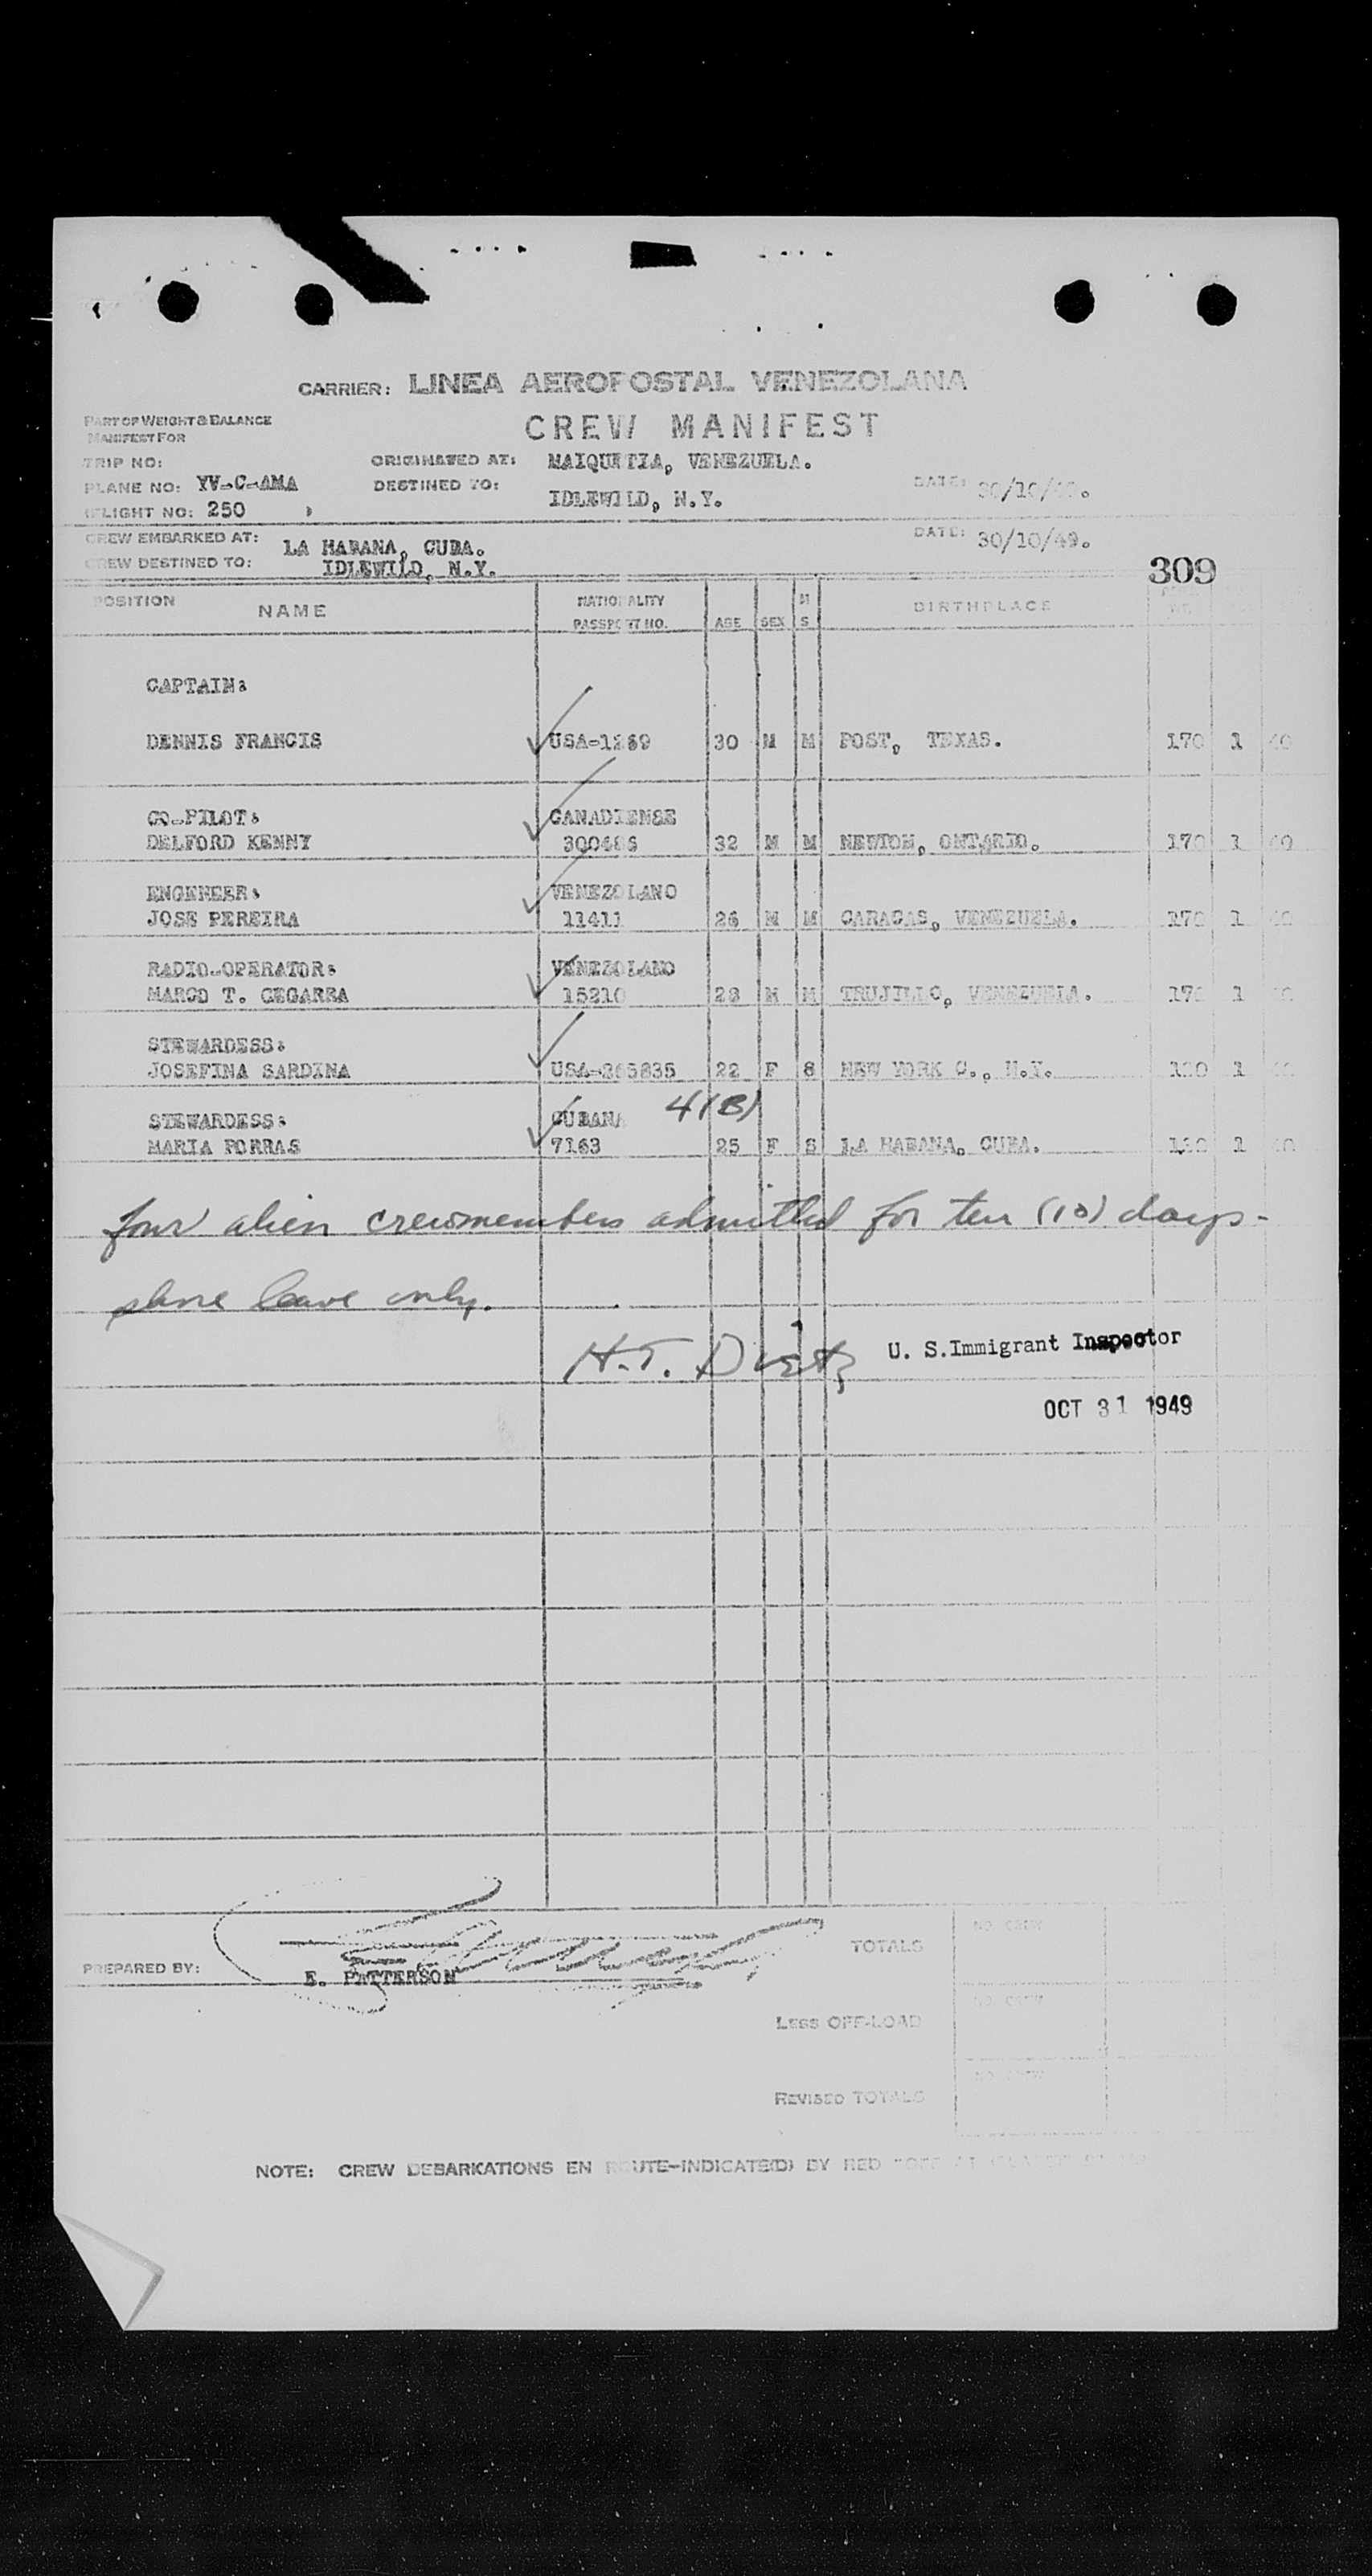 CARRIER: LINEA AEROPOSTAL VENEZOLANA
PART OF WEIGHT & BALANCE
MANIFEST FOR
CREW MANIFEST
TRIP NO:
ORIGINATED AT: MAIQUETIA, VENEZUELA.
PLANE NO: YV-C-AMA
DESTINED TO: IDLEWILD, N.Y.
DATE: 30/10/49.
FLIGHT NO: 250
CREW EMBARKED AT: LA HABANA, CUBA.
DATE: 30/10/49.
CREW DESTINED TO: IDLEWILD, N.Y.
309
POSITION NAME NATIONALITY PASSPORT NO. AGE SEX M S BIRTHPLACE
CAPTAIN:
DENNIS FRANCIS USA-1269 30 M M POST, TEXAS. 170 1 40
CO-PILOT: CANADIENSE
DELFORD KENNY 300486 32 M M NEWTON, ONTARIO. 170 1 40
ENGENEER: VENEZOLANO
JOSE PEREIRA 11411 26 M M CARACAS, VENEZUELA. 170 1
RADIO-OPERATOR: VENEZOLANO
MARCO T. CEGARRA 15210 28 M M TRUJILLO, VENEZUELA. 170 1
STEWARDESS:
JOSEFINA SARDINA USA-365835 22 F S NEW YORK C., N.Y. 1
STEWARDESS: CUBANA 4(B)
MARIA PORRAS 7163 25 F S LA HABANA, CUBA. 1
four alien crewmembers admitted for ten (10) days -
shore leave only.
H.T. Dietz U. S. Immigrant Inspector
OCT 31 1949
TOTALS
PREPARED BY: E. PATTERSON
LESS OFF-LOAD
REVISED TOTALS
NOTE: CREW DEBARKATIONS EN ROUTE-INDICATE(D) BY RED